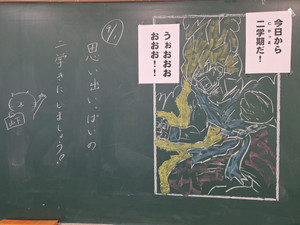 今日から
二学期だ！
にがっき
うおおおお
おおお！！
9/1
思い出いっぱいの
二学きにしましょう!!